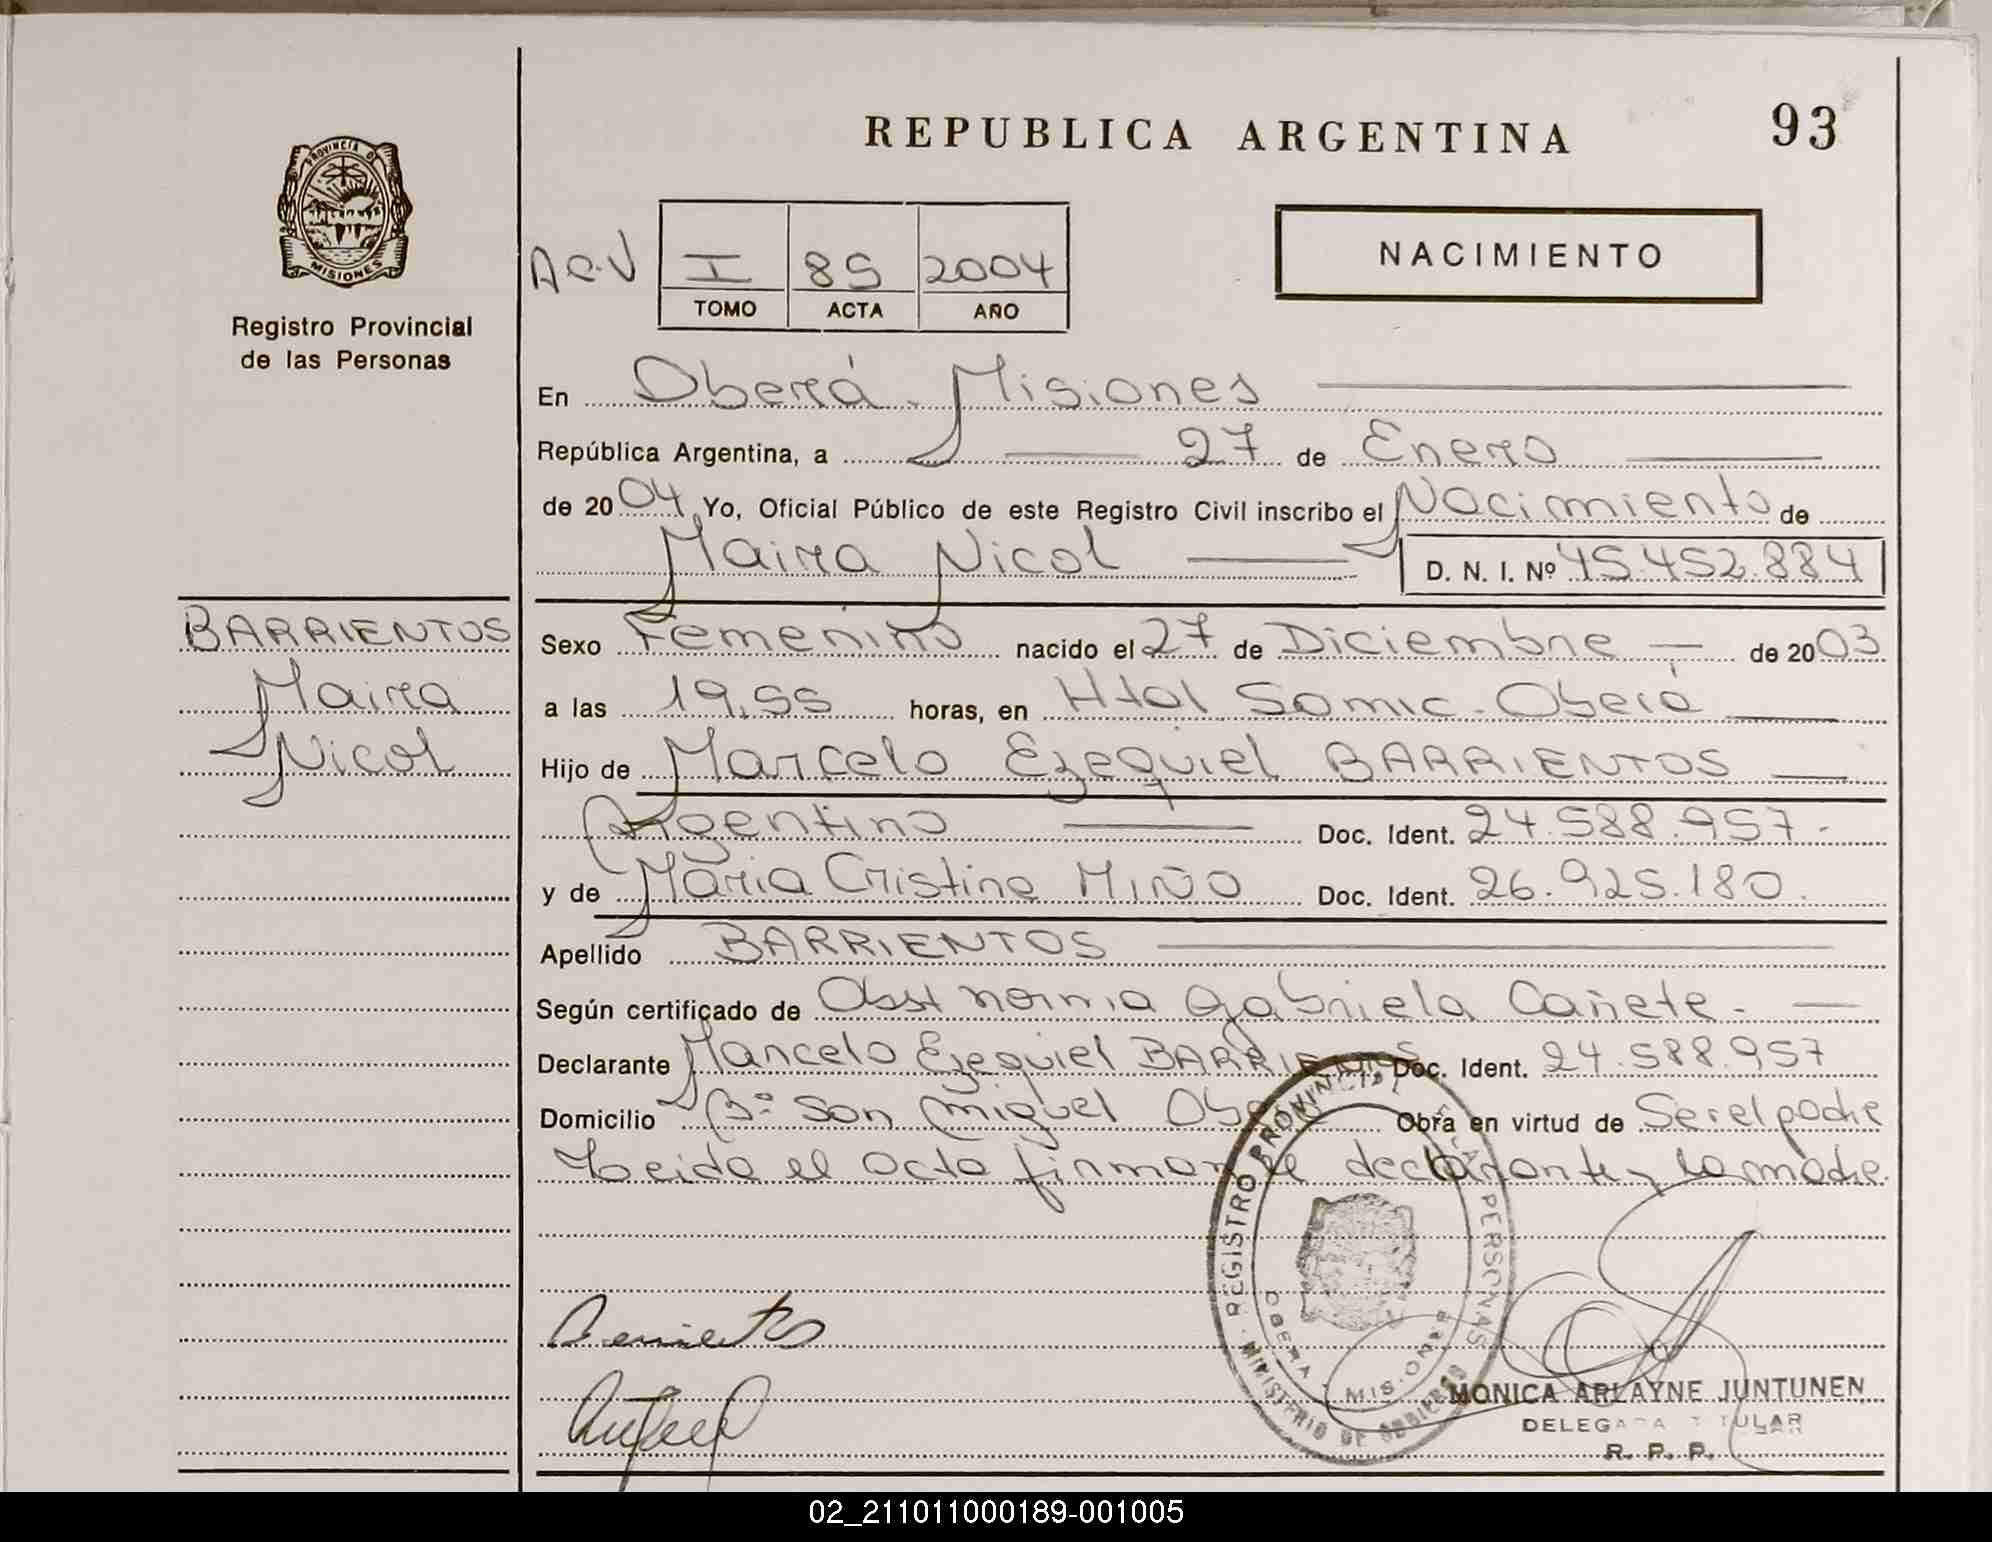 REPUBLICA ARGENTINA
93
PROVINCIA DE
MISIONES
Registro Provincial
de las Personas
I 85 2004
TOMO ACTA AÑO
NACIMIENTO
En Oberá - Misiones
República Argentina, a 27 de Enero
de 2004 Yo, Oficial Público de este Registro Civil inscribo el Nacimiento de
Maira Nicol D. N. I. Nº 45.452.884
BARRIENTOS
Maira
Nicol
Sexo Femenino nacido el 27 de Diciembre de 2003
a las 19,55 horas, en Htal Samic - Oberá
Hijo de Marcelo Ezequiel BARRIENTOS
Argentino Doc. Ident. 24.588.957.-
y de Maria Cristina MIÑO Doc. Ident. 26.925.180.
Apellido BARRIENTOS
Según certificado de Obst Norma Gabriela Cañete.
Declarante Marcelo Ezequiel BARRIENTOS Doc. Ident. 24.588.957
Domicilio Bº San Miguel Oberá Obra en virtud de Ser el padre
Leida el acta firman el declarante y la madre.
REGISTRO PROVINCIAL DE LAS PERSONAS
MINISTERIO DE GOBIERNO
OBERA MISIONES
Barrientos
MONICA ARLAYNE JUNTUNEN
DELEGADA TITULAR
R. P. P.
02_211011000189-001005